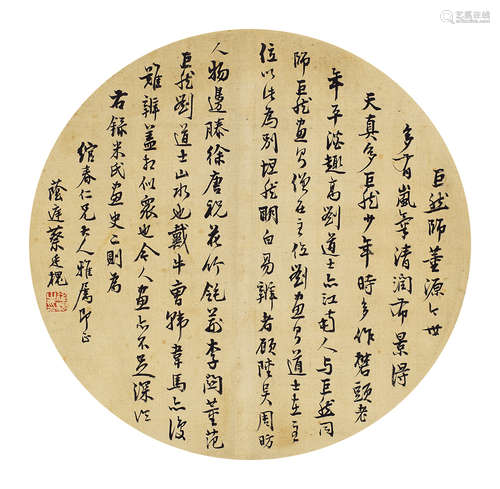 巨然師董源今世
多有嵐氣清潤布景得
天真多巨然少年時多作礬頭老
年平淡趣高劉道士亦江南人與巨然同
師巨然畫則僧在主位劉畫則道士在主
位以此為別坦然明白易辨者顧陸吳周昉
人物邊滕徐唐祝花竹李関董范
巨然劉道士山水也戴牛曹韓韋馬亦復
難辨蓋相似衆也今人畫亦不足深論
右錄米氏畫史二則為
綰春仁兄大人雅屬即正
蔭庭蔡廷槐